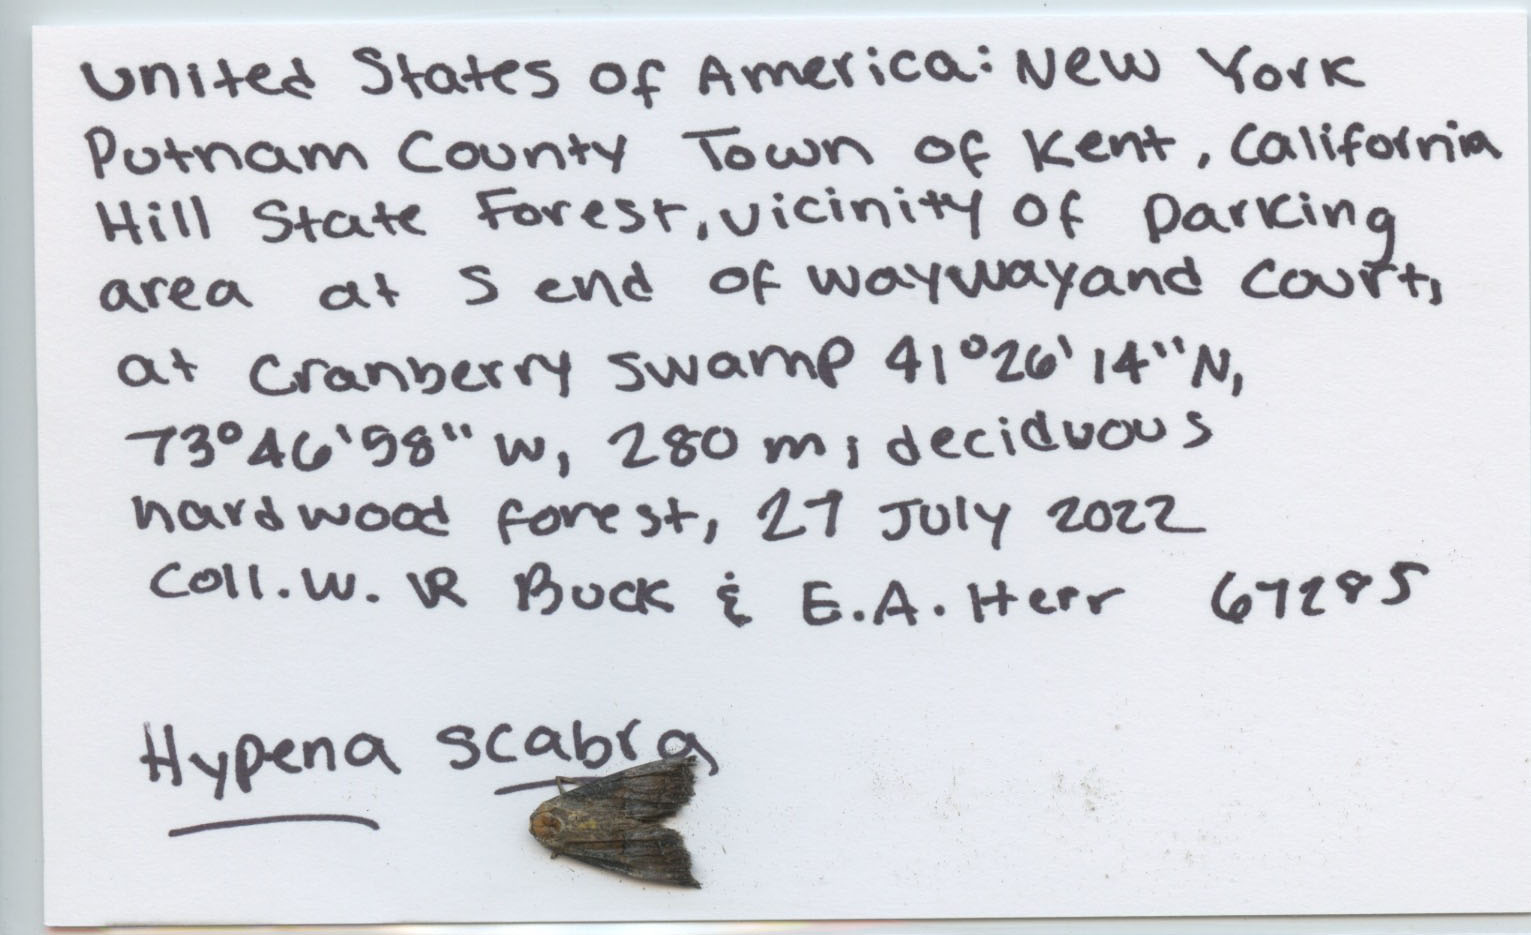 United States of America: New York
Putnam County Town of Kent, California
Hill State Forest, vicinity of parking
area at S end of waywayand Court,
at Cranberry swamp 41°26'14"N,
73°46'58" W, 280 m; deciduous
hardwood forest, 27 July 2022
Coll. W. R Buck & E.A. Herr 67285
Hypena scabra